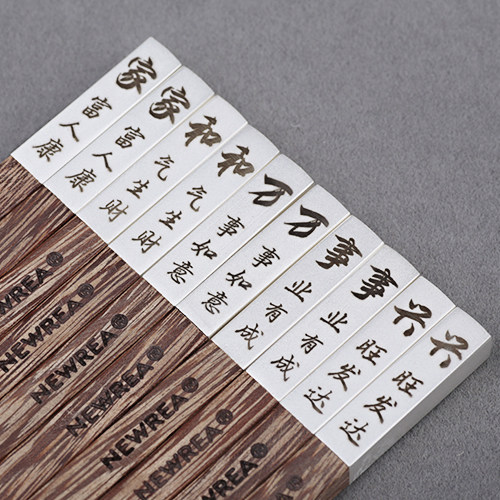 家富人康
家富人康
和气生财
和气生财
万事如意
万事如意
事业有成
事业有成
兴旺发达
兴旺发达
NEWREA®
NEWREA®
NEWREA®
NEWREA®
NEWREA®
NEWREA®
NEWREA®